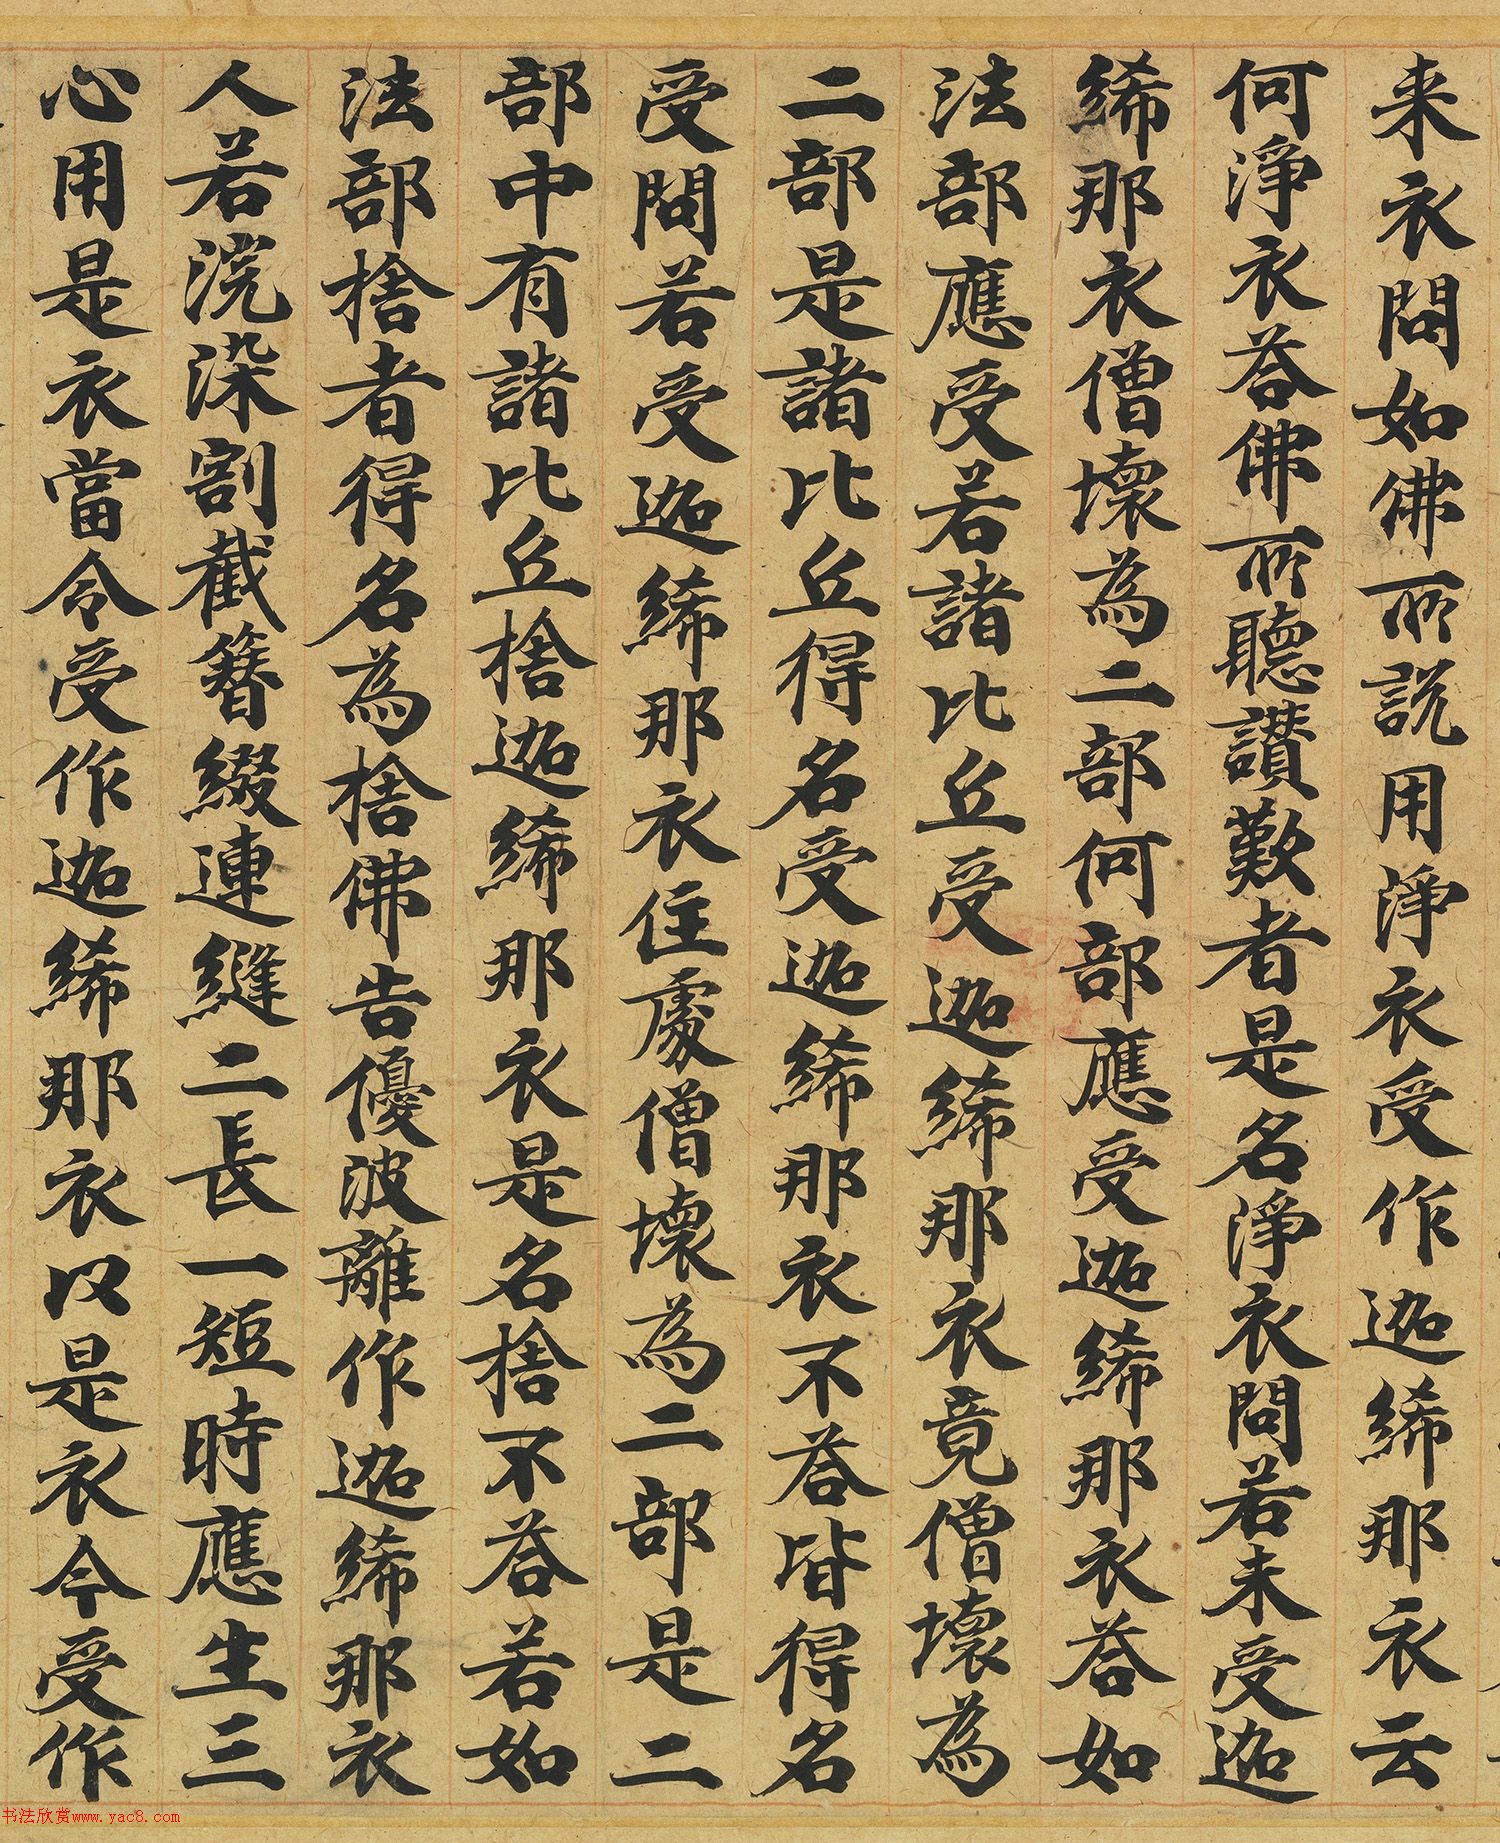 来衣問如佛所説用淨衣受作迦絺那衣云
何淨衣荅佛所聽讃歎者是名淨衣問若未受迦
絺那衣僧壞為二部何部應受迦絺那衣荅如
法部應受若諸比丘受迦絺那衣竟僧壞為
二部是諸比丘得名受迦絺那衣不荅皆得名
受問若受迦絺那衣住處僧壞為二部是二
部中有諸比丘捨迦絺那衣是名捨不荅若如
法部捨者得名為捨佛告優波離作迦絺那衣
人若浣染割截簪綴連縫二長一短時應生三
心用是衣當令受作迦絺那衣以是衣今受作
书法欣赏www.yac8.com